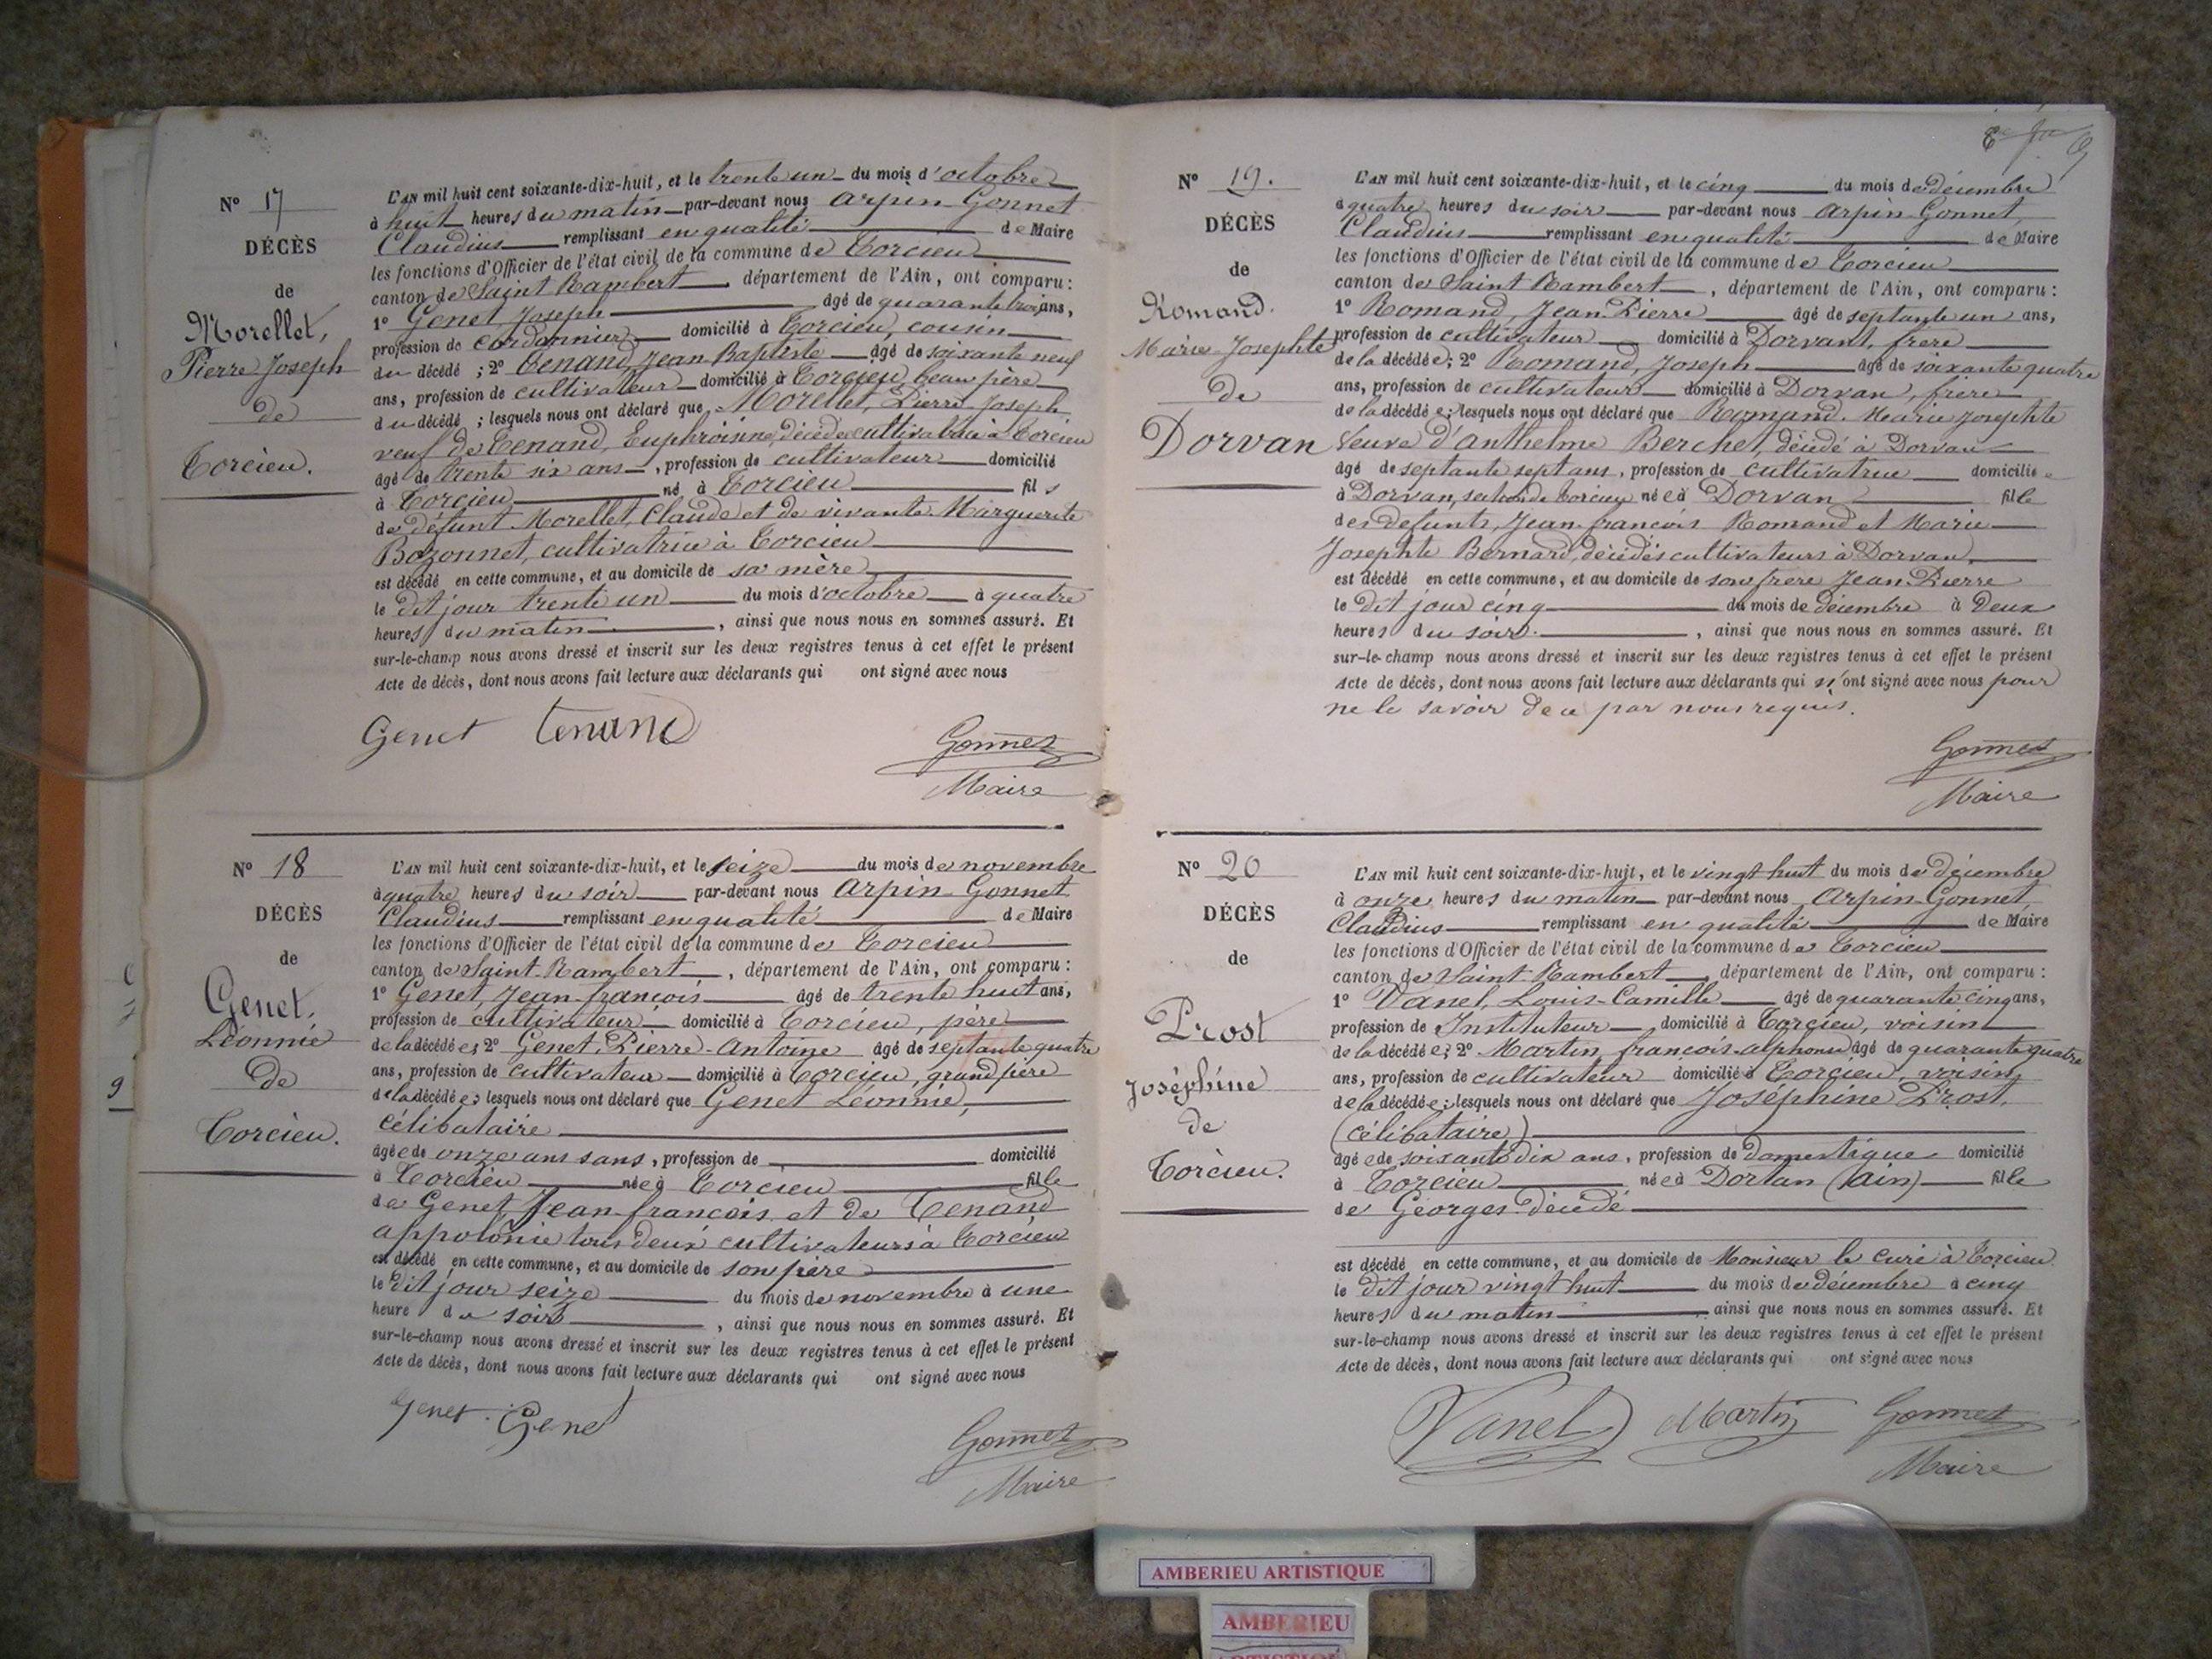 N° 17
DÉCÈS
de
Morellet,
Pierre Joseph
de
Torcieu.
L'AN mil huit cent soixante-dix-huit, et le trente un du mois d'octobre
à huit heures du matin par-devant nous Arpin-Gonnet
Claudius remplissant en qualité de Maire
les fonctions d'Officier de l'état civil de la commune de Torcieu
canton de Saint Rambert, département de l'Ain, ont comparu :
1° Genet, Joseph âgé de quarante trois ans,
profession de cordonnier domicilié à Torcieu, cousin
du décédé ; 2° Tenand, Jean-Baptiste âgé de soixante neuf
ans, profession de cultivateur domicilié à Torcieu, beau père
du décédé ; lesquels nous ont déclaré que Morellet, Pierre Joseph
veuf de Tenand, Euphroisine, décédée cultivatrice à Torcieu
âgé de trente six ans, profession de cultivateur domicilié
à Torcieu né à Torcieu fils
de défunt Morellet, Claude et de vivante Marguerite
Bozonnet, cultivatrice à Torcieu
est décédé en cette commune, et au domicile de sa mère
le dit jour trente un du mois d'octobre à quatre
heures du matin, ainsi que nous nous en sommes assuré. Et
sur-le-champ nous avons dressé et inscrit sur les deux registres tenus à cet effet le présent
Acte de décès, dont nous avons fait lecture aux déclarants qui ont signé avec nous
Genet Tenand
Gonnet
Maire
N° 18
DÉCÈS
de
Genet,
Léonnie
de
Torcieu.
L'AN mil huit cent soixante-dix-huit, et le seize du mois de novembre
à quatre heures du soir par-devant nous Arpin-Gonnet
Claudius remplissant en qualité de Maire
les fonctions d'Officier de l'état civil de la commune de Torcieu
canton de Saint-Rambert, département de l'Ain, ont comparu :
1° Genet, Jean-françois âgé de trente huit ans,
profession de cultivateur domicilié à Torcieu, père
de la décédée ; 2° Genet, Pierre-Antoine âgé de septante quatre
ans, profession de cultivateur domicilié à Torcieu, grand père
de la décédée ; lesquels nous ont déclaré que Genet Léonnie,
célibataire
âgée de onze ans sans, profession de domicilié
à Torcieu née à Torcieu fille
de Genet, Jean-françois et de Tenand
appolonie tous deux cultivateurs à Torcieu
est décédé en cette commune, et au domicile de son père
le dit jour seize du mois de novembre à une
heure du soir, ainsi que nous nous en sommes assuré. Et
sur-le-champ nous avons dressé et inscrit sur les deux registres tenus à cet effet le présent
Acte de décès, dont nous avons fait lecture aux déclarants qui ont signé avec nous
Genet. Genet
Gonnet
Maire
9
N° 19.
DÉCÈS
de
Romand.
Marie-Josephte
de
Dorvan
L'AN mil huit cent soixante-dix-huit, et le cinq du mois de décembre
à quatre heures du soir par-devant nous Arpin-Gonnet,
Claudius remplissant en qualité de Maire
les fonctions d'Officier de l'état civil de la commune de Torcieu
canton de Saint Rambert, département de l'Ain, ont comparu :
1° Romand, Jean-Pierre âgé de septante un ans,
profession de cultivateur domicilié à Dorvant, frère
de la décédée ; 2° Romand, Joseph âgé de soixante quatre
ans, profession de cultivateur domicilié à Dorvan, frère
de la décédée ; lesquels nous ont déclaré que Romand. Marie Josephte
Veuve d'Anthelme Berchet, décédé à Dorvan
âgé de septante sept ans, profession de cultivatrice domicilié
à Dorvan, section de Torcieu née à Dorvan fille
des défunts, Jean-françois Romand et Marie
Josephte Bernard, décédés cultivateurs à Dorvan
est décédé en cette commune, et au domicile de son frère Jean-Pierre
le dit jour cinq du mois de décembre à deux
heures du soir, ainsi que nous nous en sommes assuré. Et
sur-le-champ nous avons dressé et inscrit sur les deux registres tenus à cet effet le présent
Acte de décès, dont nous avons fait lecture aux déclarants qui n'ont signé avec nous pour
ne le savoir de ce par nous requis.
Gonnet
Maire
N° 20
DÉCÈS
de
Prost
Joséphine
de
Torcieu.
L'AN mil huit cent soixante-dix-huit, et le vingt huit du mois de décembre
à onze heures du matin par-devant nous Arpin-Gonnet,
Claudius remplissant en qualité de Maire
les fonctions d'Officier de l'état civil de la commune de Torcieu
canton de Saint-Rambert, département de l'Ain, ont comparu :
1° Vanel, Louis-Camille âgé de quarante cinq ans,
profession de Instituteur domicilié à Torcieu, voisin
de la décédée ; 2° Martin, françois-alphonse âgé de quarante quatre
ans, profession de cultivateur domicilié à Torcieu, voisin
de la décédée ; lesquels nous ont déclaré que Joséphine Prost,
(célibataire)
âgée de soixante dix ans, profession de domestique domicilié
à Torcieu née à Dortan (Ain) fille
de Georges décédé
est décédé en cette commune, et au domicile de Monsieur le Curé à Torcieu
le dit jour vingt huit du mois de décembre à cinq
heures du matin ainsi que nous nous en sommes assuré. Et
sur-le-champ nous avons dressé et inscrit sur les deux registres tenus à cet effet le présent
Acte de décès, dont nous avons fait lecture aux déclarants qui ont signé avec nous
Vanel Martin Gonnet
Maire
AMBERIEU ARTISTIQUE
AMBERIEU
ARTISTIQUE